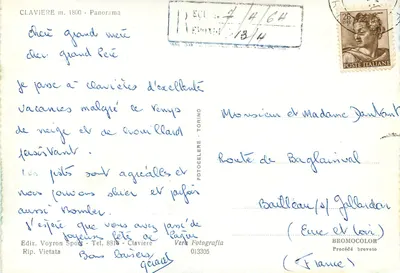 CLAVIERE m. 1800 - Panorama
chère grand mère
cher grand Père
je passe à clavières d'excellente
vacances malgré ce temps
de neige et de brouillard
persistant.
Les pistes sont agréables et
nous pouvons skier et parfois
aussi tomber.
J'espère que vous avez passé de
joyeuse fête de Pâques
Bons Baisers
Gérard
Ediz. Voyron Sport - Tel. 8816 - Claviere
Rip. Vietata
Vera Fotografia
013305
FOTOCELERE TORINO
7/4/64
13/4
POSTE ITALIANE
Monsieur et Madame
Route de Baglainval
Bailleau s/ Gallardon
(Eure et Loir)
(France)
BROMOCOLOR
Procédé breveté